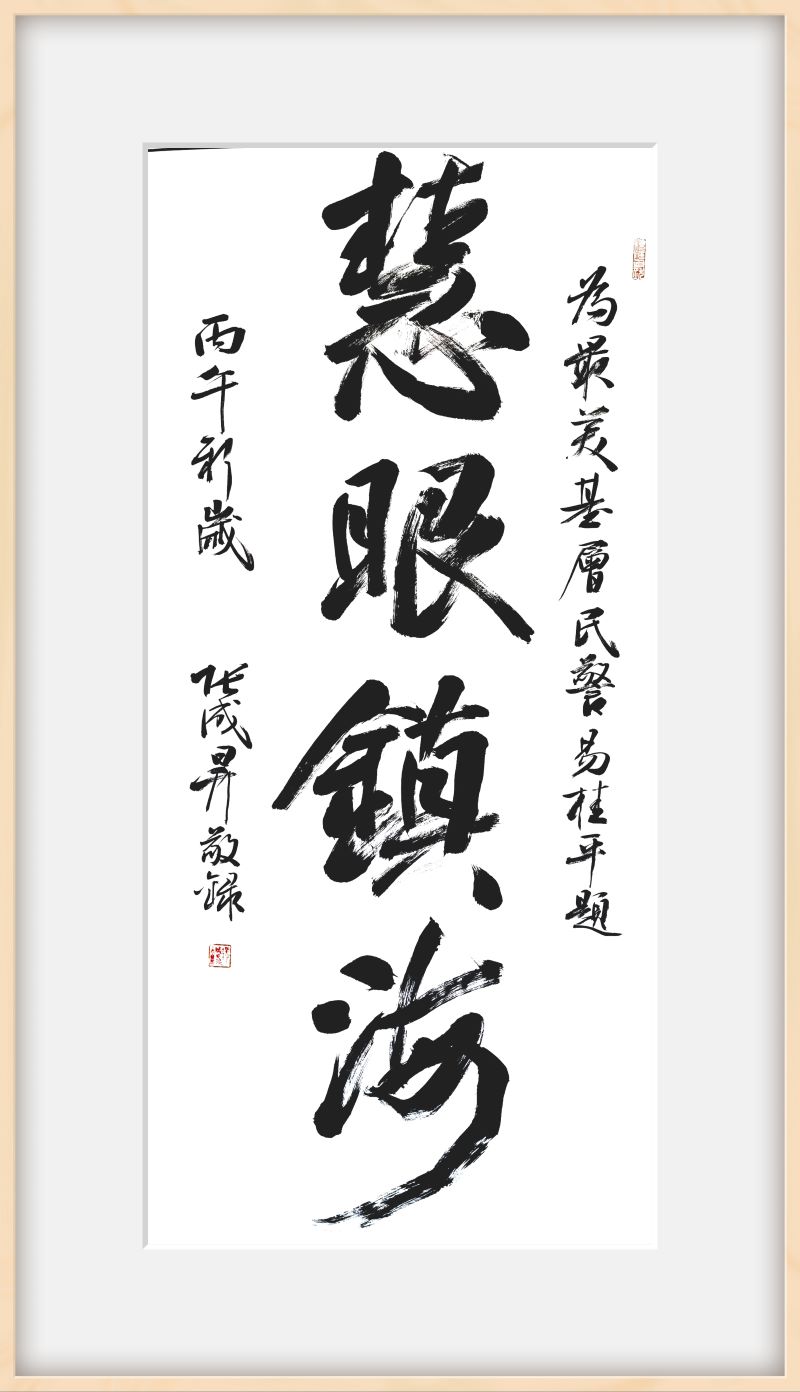 為最美基層民警易桂平題
慧眼鎮海
丙午新歲
張成昇敬錄